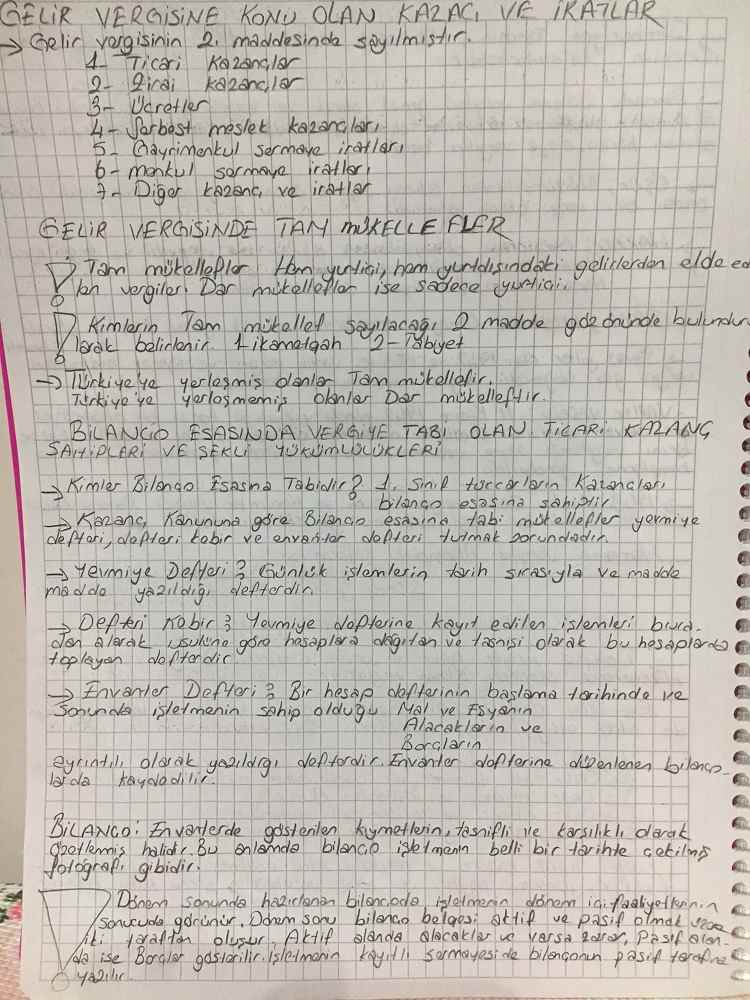 GELİR VERGİSİNE KONU OLAN KAZAÇ, VE İRATLAR
→ Gelir vergisinin 2. maddesinde sayılmıştır.
1- Ticari Kazançlar
2- Zirai kazançlar
3- Ücretler
4- Serbest meslek kazançları
5- Gayrimenkul sermaye iratları
6- menkul sermaye iratları
7- Diğer kazanç ve iratlar
GELİR VERGİSİNDE TAM MÜKELLEFLER
! Tam mükellefler Hem yurtiçi, hem yurtdışındaki gelirlerden elde ed
len vergiler. Dar mükellefler ise sadece yurtiçi.
! Kimlerin Tam mükellef sayılacağı 2 madde gözönünde bulundur
larak belirlenir. 1 ikametgah 2- Tabiyet
→ Türkiye'ye yerleşmiş olanlar Tam mükellefir.
Türkiye'ye yerleşmemiş olanlar Dar mükelleftir.
BİLANCO ESASINDA VERGİYE TABİ OLAN TİCARİ KAZANÇ
SAHİPLERİ VE ŞEKLİ YÜKÜMLÜLÜKLERİ
→ Kimler Bilanco Esasına Tabidir? 1. sınıf tüccarların Kazançları
bilanço esasına sahiptir
→ Kazanç Kanununa göre Bilanço esasına tabi mükellefler yevmiye
defteri, defteri kebir ve envanter defteri tutmak zorundadır.
→ Yevmiye Defteri? Günlük işlemlerin tarih sırasıyla ve madde
madde yazıldığı defterdir.
→ Defteri Kebir? Yevmiye defterine kayıt edilen işlemleri bura-
dan alarak usulüne göre hesaplara dağıtan ve tasnisi olarak bu hesaplarda
toplayan defterdir
→ Envanter Defteri? Bir hesap defterinin başlama tarihinde ve
Sonunda işletmenin sahip olduğu Mal ve Eşyanın
Alacakların ve
Borçların
ayrıntılı olarak yazıldığı defterdir. Envanter defterine düzenlenen bilanço-
larda kaydedilir.
BİLANCO: Envanterde gösterilen kıymetlerin, tasnifli ve karşılıklı olarak
özetlenmiş halidir. Bu anlamda bilanço işletmenin belli bir tarihte çekilmiş
fotoğrafı gibidir.
! Dönem sonunda hazırlanan bilançoda işletmenin dönem içi faaliyetlerinin
sonucuda görünür. Dönem sonu bilanço belgesi aktif ve pasif olmak üzere
iki taraftan oluşur. Aktif alanda alacaklar ve varsa zarar, Pasif alan-
da ise Borçlar gösterilir. İşletmenin kayıtlı sermayesi de bilançonun pasif tarafına
yazılır.